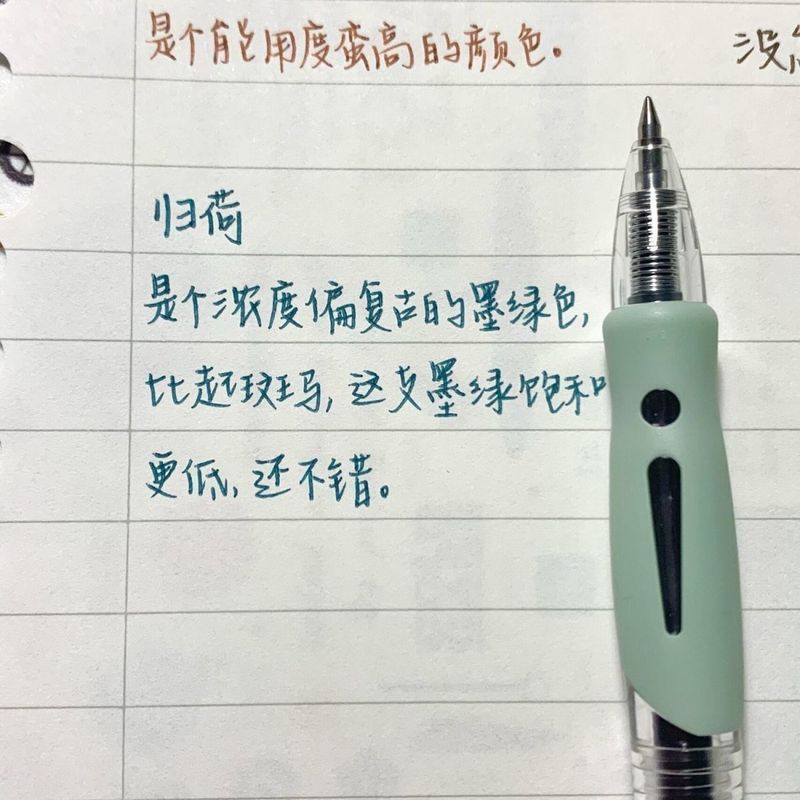 是个能用度蛮高的颜色。
没
归荷
是个浓度偏复古的墨绿色,
比起斑玛,这支墨绿饱和
更低,还不错。